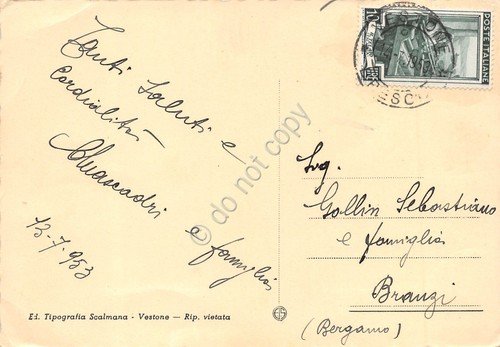 Tanti saluti e
Cordialità
e famiglia
13-7-953
Ed. Tipografia Scalmana - Vestone — Rip. vietata
10
POSTE ITALIANE
VESTONE
BRESCIA
Sig.
Gollin Sebastiano
e famiglia
Branzi
(Bergamo)
© do not copy